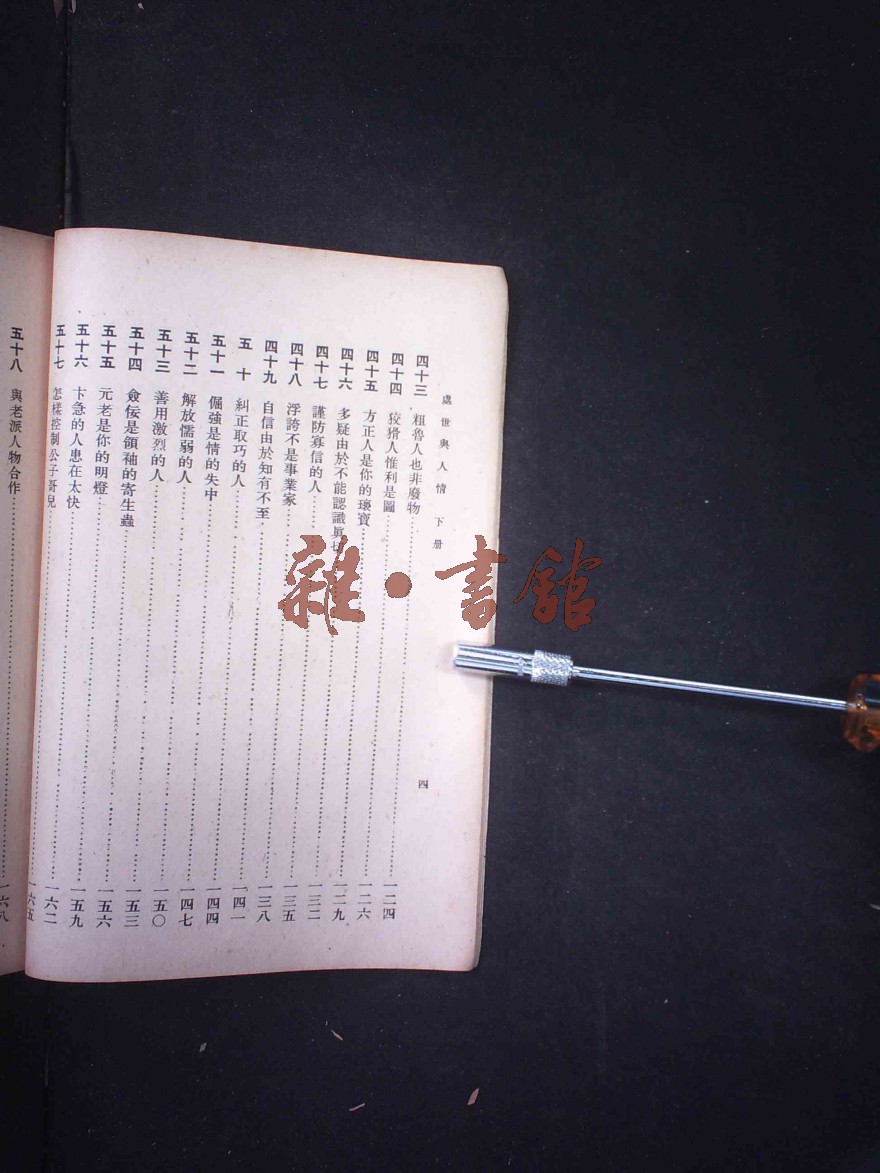 處世與人情 下册
四
四十三 粗魯人也非廢物……一二四
四十四 狡猾人惟利是圖……一二六
四十五 方正人是你的瓌寶……一二九
四十六 多疑由於不能認識眞切……一三二
四十七 謹防寡信的人……一三五
四十八 浮誇不是事業家……一三八
四十九 自信由於知有不至……一四一
五十 糾正取巧的人……一四四
五十一 倔強是情的失中……一四七
五十二 解放懦弱的人……一五〇
五十三 善用激烈的人……一五三
五十四 僉佞是領袖的寄生蟲……一五六
五十五 元老是你的明燈……一五九
五十六 卞急的人患在太快……一六二
五十七 怎樣控制公子哥兒……一六五
五十八 與老派人物合作……一六八
雜·書館